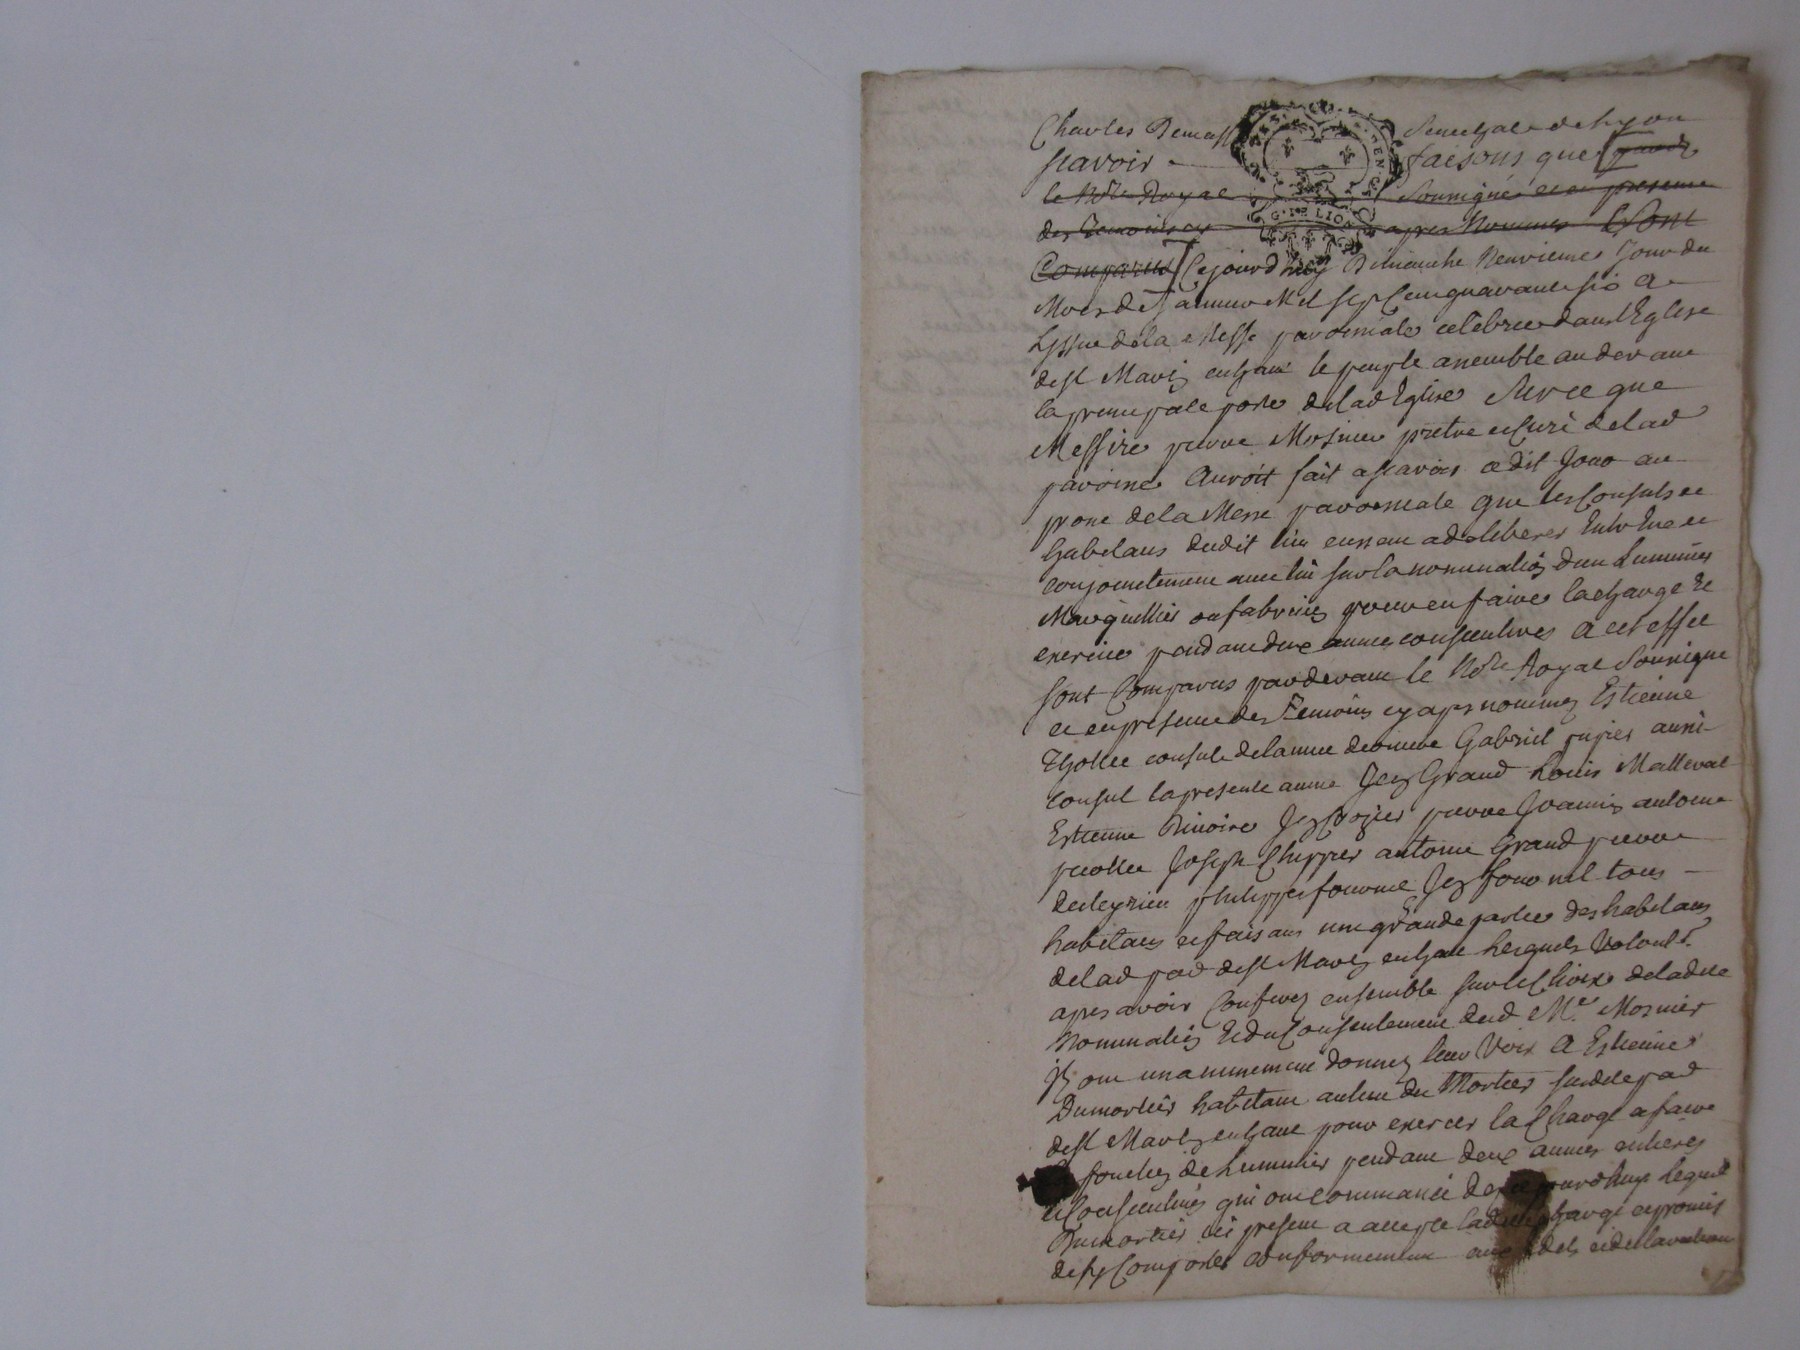 Charles Demass Senechal de Lyon
scavoir faisons que pardt
le Nore Royal soussigné et en presence
des temoins cy apres Nommes Sont
Comparus Cejourdhuy Dimanche Neuvieme Jour du
Mois de Janvier Mil sept Cent quarante six a
Lissue de la Messe paroissiale celebree dans l'Eglise
de st Martin en haut le peuple assemble au devant
la principale porte de lad Eglise Sur ce que
Messire pierre Mosnier pretre et Curé de lad
paroisse auroit fait a scavoir cedit Jour au
prone de la Messe paroissiale que les Consuls et
habitans dudit lieu eussent a deliberer Entre Eux et
conjointement avec lui sur la nomination d'un Luminier
Marguillier ou fabricien pour en faire la charge Et
exercice pendant deux annees consecutives a cet effet
sont Comparus pardevant le Nore Royal Soussigne
et en presence des Temoins cy apres nommez Estienne
Thollet consul de lannee derniere Gabriel pupier aussi
Consul la presente annee Jean Grand Louis Matteval
Estienne Jean pierre Joannin antoine
Joseph Chippier antoine Grand pierre
philippe Jean tous
habitans et faisans une grande partie des habitans
de lad par de st Martin en haut lesquels Volont.
apres avoir Conferez ensemble sur le Choix de ladite
Nomination Et du Consentement dud Mre Mosnier
ils ont unanimement donnez leur Voix a Estienne
Dumortier habitant au lieu du Mortier susditte par
de st Martin en haut pour exercer la Charge a faire
fonction de Luminier pendant deux annees entieres
et Consecutives qui ont commancé des aujourdhuy Lequel
Dumortier ici present a accepte ladite charge et promis
de sy Comporter conformement aux edits et declarations
G.Lte LION